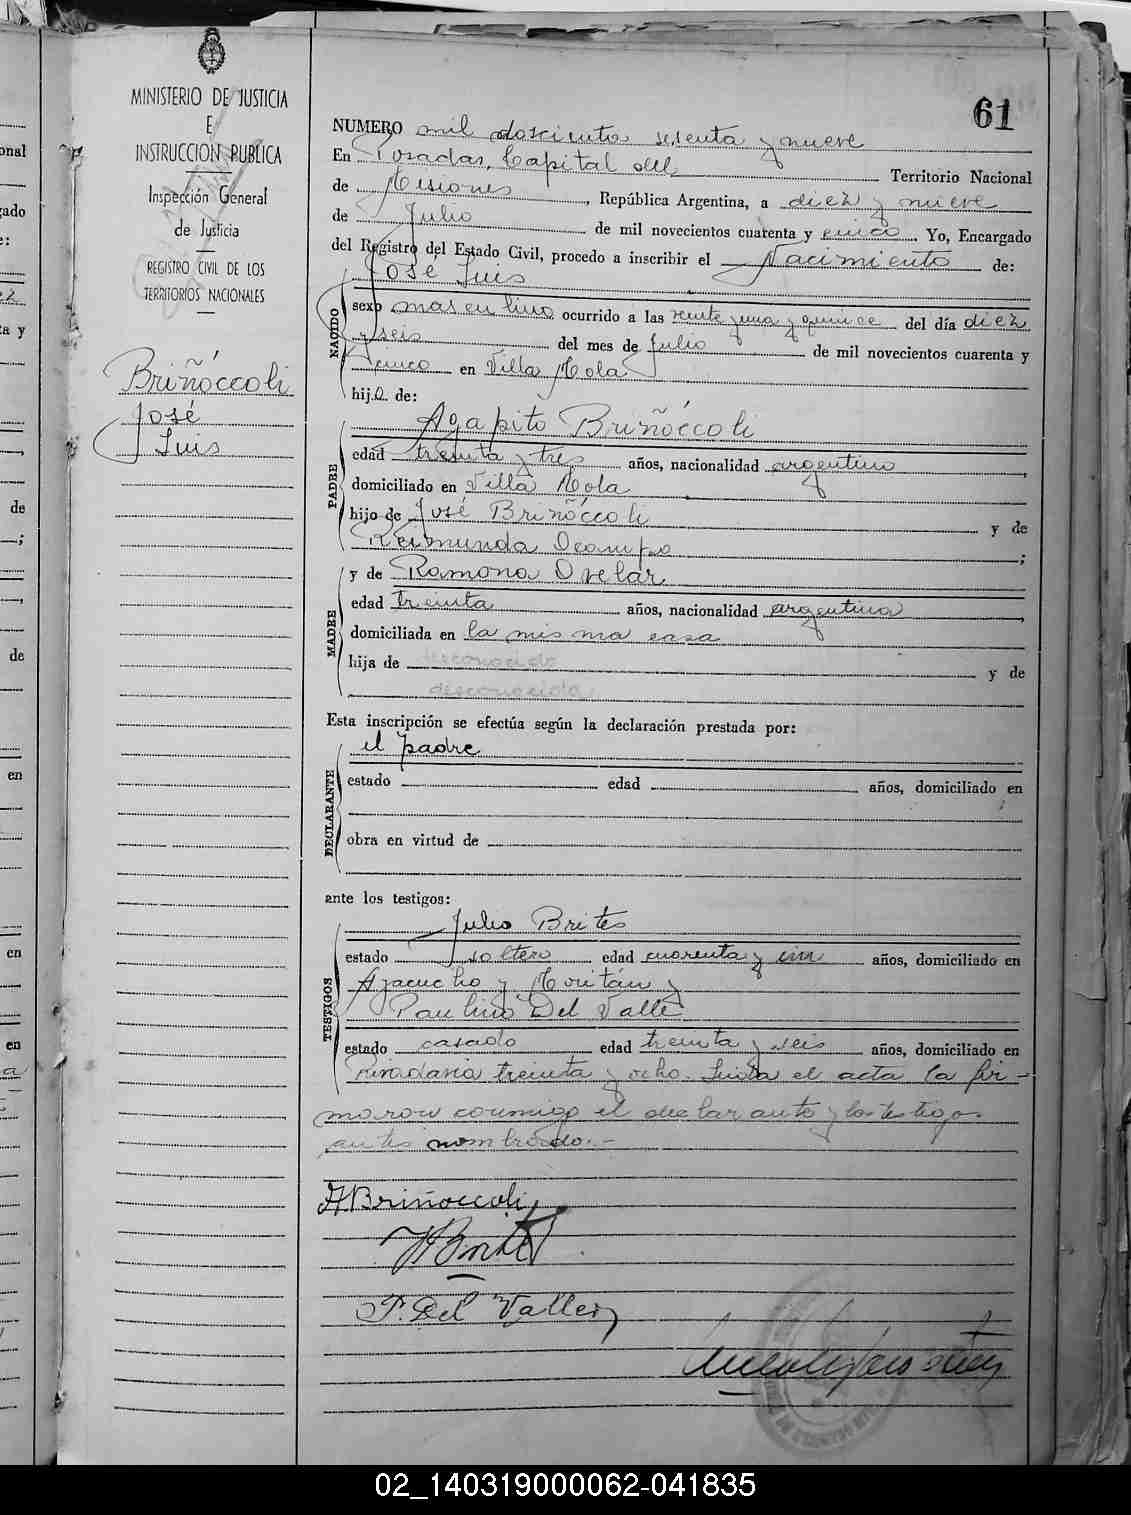 61
MINISTERIO DE JUSTICIA
E
INSTRUCCION PUBLICA
Inspección General
de Justicia
REGISTRO CIVIL DE LOS
TERRITORIOS NACIONALES
Briñóccoli
José
Luis
NUMERO mil doscientos sesenta y nueve
En Posadas, Capital del Territorio Nacional
de Misiones, República Argentina, a diez y nueve
de Julio de mil novecientos cuarenta y cinco. Yo, Encargado
del Registro del Estado Civil, procedo a inscribir el Nacimiento de:
José Luis
NACIDO
sexo masculino ocurrido a las veinte y una y quince del día diez
y seis del mes de Julio de mil novecientos cuarenta y
cinco en Villa Mola
hijo de:
Agapito Briñóccoli
PADRE
edad treinta y tres años, nacionalidad argentino,
domiciliado en Villa Mola
hijo de José Briñóccoli y de
Reimunda Ocampo;
y de Ramona Ovelar
MADRE
edad treinta años, nacionalidad argentina,
domiciliada en la misma casa
hija de desconocido y de
desconocida
Esta inscripción se efectúa según la declaración prestada por:
el padre
DECLARANTE
estado edad años, domiciliado en
obra en virtud de
ante los testigos:
Julio Brites
TESTIGOS
estado soltero edad cuarenta y un años, domiciliado en
Ayacucho y Moritán y
Paulino Del Valle
estado casado edad treinta y seis años, domiciliado en
Rivadavia treinta y ocho. Leída el acta la fir-
maron conmigo el declarante y los testigos
antes nombrados.-
A Briñoccoli
J Brites
P. Del Valle
02_140319000062-041835